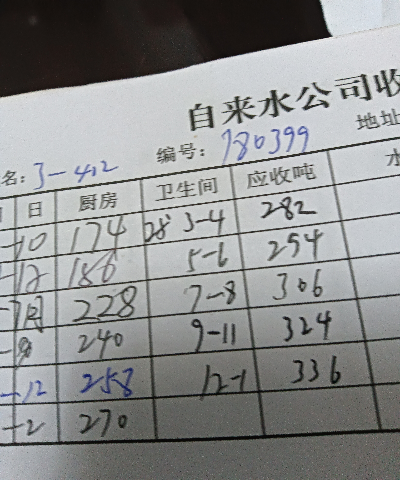 自来水公司收
名: 3-412 编号: 780399 地址
日 厨房 卫生间 应收吨 水
-10 174 28 3-4 282
-12 186 5-6 294
228 7-8 306
240 9-11 324
-12 258 12-1 336
-2 270